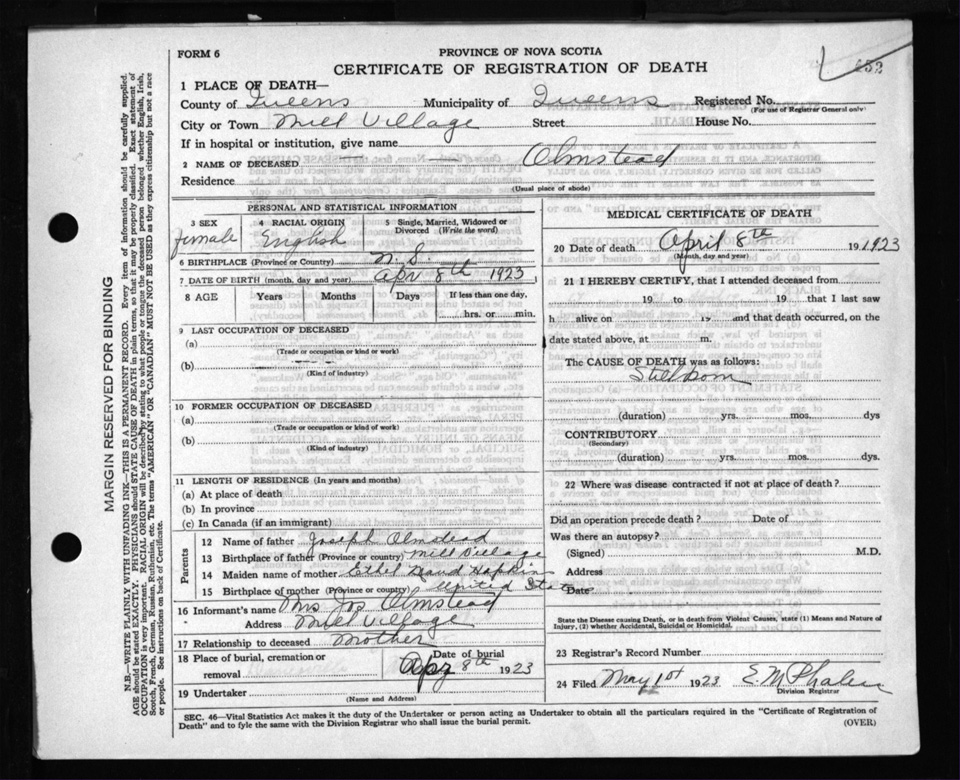 FORM 6
PROVINCE OF NOVA SCOTIA
CERTIFICATE OF REGISTRATION OF DEATH
1 PLACE OF DEATH—
County of Queens Municipality of Queens Registered No.
(For use of Registrar General only)
City or Town Mill Village Street House No.
If in hospital or institution, give name
2 NAME OF DECEASED Olmstead
Residence
(Usual place of abode)
PERSONAL AND STATISTICAL INFORMATION
3 SEX 4 RACIAL ORIGIN 5 Single, Married, Widowed or Divorced (Write the word)
female English
6 BIRTHPLACE (Province or Country) N. S.
7 DATE OF BIRTH (month, day and year) Apr 8th 1923
8 AGE Years Months Days If less than one day,
hrs. or min.
9 LAST OCCUPATION OF DECEASED
(a)
(Trade or occupation or kind of work)
(b)
(Kind of industry)
10 FORMER OCCUPATION OF DECEASED
(a)
(Trade or occupation or kind of work)
(b)
(Kind of industry)
11 LENGTH OF RESIDENCE (In years and months)
(a) At place of death
(b) In province
(c) In Canada (if an immigrant)
Parents
12 Name of father Joseph Olmstead
13 Birthplace of father (Province or country) Mill Village
14 Maiden name of mother Ethel Maud Hopkins
15 Birthplace of mother (Province or country) United States
16 Informant's name Mrs Jos Olmstead
Address Mill Village
17 Relationship to deceased Mother
18 Place of burial, cremation or removal Date of burial
Apr 8th 1923
19 Undertaker
(Name and Address)
MEDICAL CERTIFICATE OF DEATH
20 Date of death April 8th 19 1923
(Month, day and year)
21 I HEREBY CERTIFY, that I attended deceased from
19 to 19 that I last saw
h alive on 19 and that death occurred, on the
date stated above, at m.
The CAUSE OF DEATH was as follows:
Stillborn
(duration) yrs. mos. dys
CONTRIBUTORY
(Secondary)
(duration) yrs. mos. dys.
22 Where was disease contracted if not at place of death?
Did an operation precede death? Date of
Was there an autopsy?
(Signed) M.D.
Address
Date
State the Disease causing Death, or in death from Violent Causes, state (1) Means and Nature of
Injury, (2) whether Accidental, Suicidal or Homicidal.
23 Registrar's Record Number
24 Filed May 1st 1923 E. M Phalen
Division Registrar
SEC. 46—Vital Statistics Act makes it the duty of the Undertaker or person acting as Undertaker to obtain all the particulars required in the "Certificate of Registration of
Death" and to fyle the same with the Division Registrar who shall issue the burial permit.
(OVER)
MARGIN RESERVED FOR BINDING
N.B.—WRITE PLAINLY WITH UNFADING INK—THIS IS A PERMANENT RECORD. Every item of information should be carefully supplied.
AGE should be stated EXACTLY. PHYSICIANS should STATE CAUSE OF DEATH in plain terms, so that it may be properly classified. Exact statement of
OCCUPATION is very important. RACIAL ORIGIN will be described by stating to what people or tongue the deceased person belonged whether English, Irish,
Scotch, French, German, Russian, Ruthenian, etc. The terms "AMERICAN" OR "CANADIAN" MUST NOT BE USED as they express citizenship but not a race
or people. See instructions on back of Certificate.